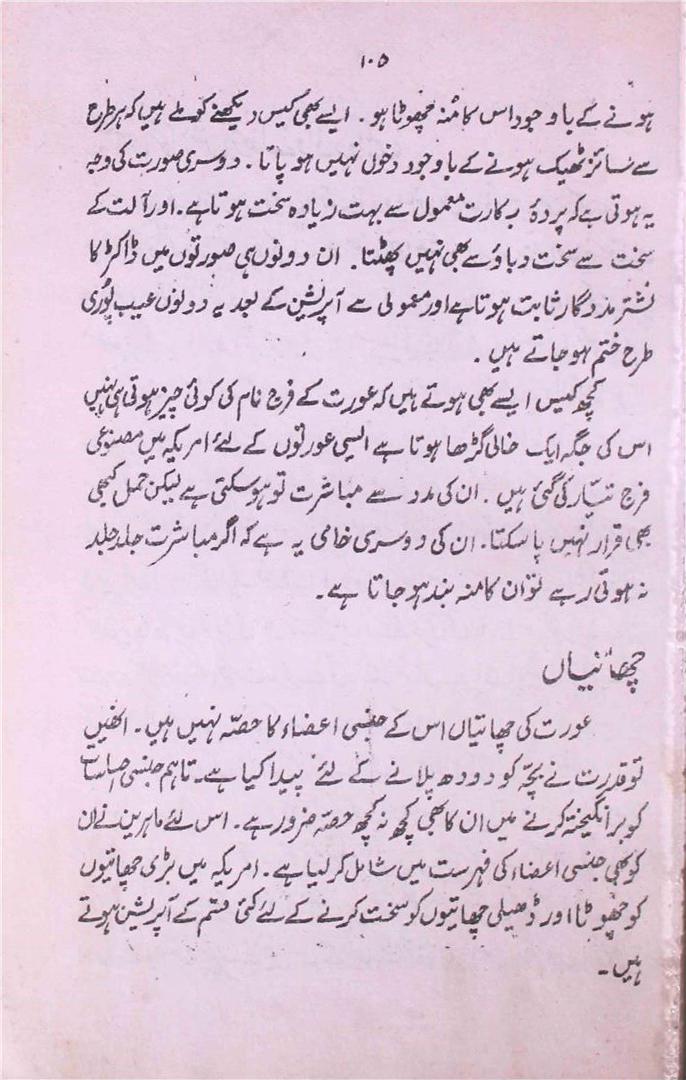 ۱۰۵
ہونے کے باوجود اس کا منہ چھوٹا ہو۔ ایسے بھی کیس دیکھنے کو ملے ہیں کہ ہر طرح
سے سائز ٹھیک ہونے کے باوجود دخول نہیں ہو پاتا۔ دوسری صورت کی وجہ
یہ ہوتی ہے کہ پردۂ بکارت معمول سے بہت زیادہ سخت ہوتا ہے۔ اور آلت کے
سخت سے سخت دباؤ سے بھی نہیں پھٹتا۔ ان دونوں ہی صورتوں میں ڈاکٹر کا
نشتر مددگار ثابت ہوتا ہے اور معمولی سے آپریشن کے بعد یہ دونوں عیب پوری
طرح ختم ہو جاتے ہیں۔
کچھ کیس ایسے بھی ہوتے ہیں کہ عورت کے فرج نام کی کوئی چیز ہوتی ہی نہیں
اس کی جگہ ایک خالی گڑھا ہوتا ہے ایسی عورتوں کے لئے امریکہ میں مصنوعی
فرج تیّار کی گئی ہیں۔ ان کی مدد سے مباشرت تو ہو سکتی ہے لیکن حمل کبھی
بھی قرار نہیں پا سکتا۔ ان کی دوسری خامی یہ ہے کہ اگر مباشرت جلد جلد
نہ ہوتی رہے تو ان کا منہ بند ہو جاتا ہے۔
چھاتیاں
عورت کی چھاتیاں اس کے جنسی اعضاء کا حصّہ نہیں ہیں۔ انھیں
تو قدرت نے بچّہ کو دودھ پلانے کے لئے پیدا کیا ہے۔ تاہم جنسی احساسات
کو برانگیختہ کرنے میں ان کا بھی کچھ نہ کچھ حصّہ ضرور ہے۔ اس لئے ماہرین نے ان
کو بھی جنسی اعضاء کی فہرست میں شامل کر لیا ہے۔ امریکہ میں بڑی چھاتیوں
کو چھوٹا اور ڈھیلی چھاتیوں کو سخت کرنے کے لئے کئی قسم کے آپریشن ہوتے
ہیں۔